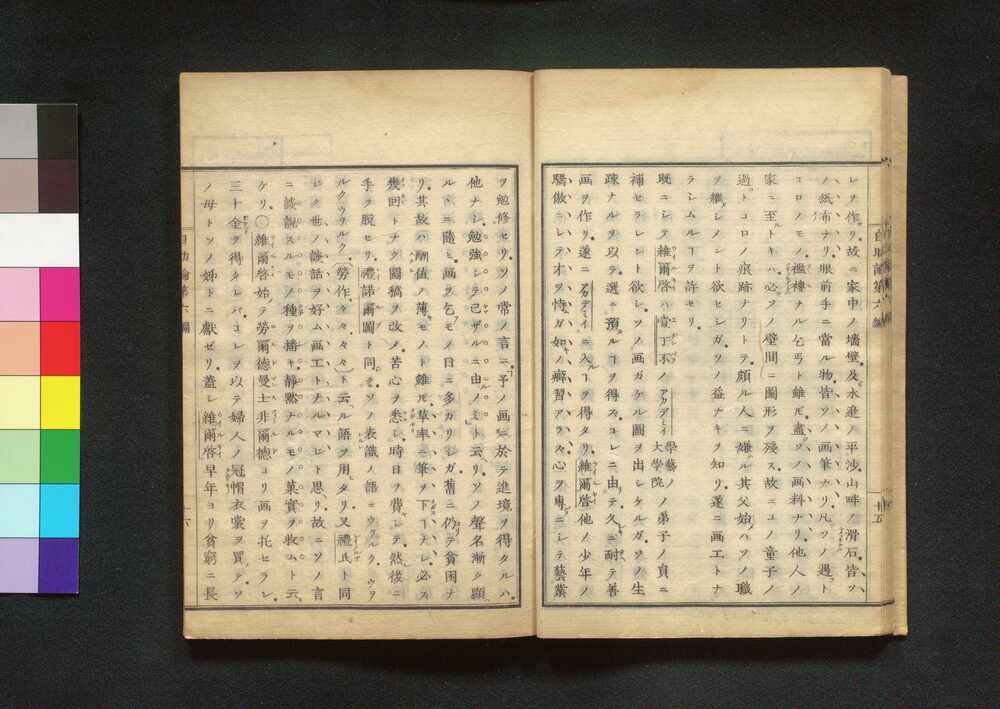 レヲ作リ。故ニ家中ノ墻壁及ヒ水邊ノ平沙山畔ノ滑石。皆ソ
ノ紙布ナリ。眼前手ニ當ル物。皆ソノ画筆ナリ。凡ソノ遇フト
コロノモノ。襤褸ナル乞丐ト雖モ。盡クソノ画料ナリ。他人ノ
家ニ至ルトキハ。必ズソノ壁間ニ圖形ヲ殘ス。故ニコノ童子ノ
過ルトコロノ痕跡ナリトテ。頗ル人ニ嫌ハル其父始ハソノ職
ヲ繼シメント欲セシガ。ソノ益ナキヲ知リ。遂ニ画工トナ
ラシムルヿヲ許セリ。
既ニシテ維爾啓ハ壹丁不ノアカデミイ 學藝ノ大學院 ノ弟子ノ員ニ
補セラレント欲シ。ソノ画ガケル圖ヲ出シケルガ。ソノ生
疎ナルヲ以テ選ニ預ルヿヲ得ズ。コレニ由テ久シク耐テ善
画ヲ作リ。遂ニアカデミイニ入ルヿヲ得タリ。維爾啓他ノ少年ノ
驕傲ニシテ才ヲ恃ムガ如キノ癖習アラズ。心ヲ專ニシテ藝業
ヲ勉修セリ。ソノ常ノ言ニ。予ノ画ニ於テ進境ヲ得タルハ
他ナシ。勉強シテ己ザルニ由ルノミト云リ。ソノ聲名漸ク顯
ルヽニ隨ヒ。画ヲ乞フモノ日ニ多カリシガ。舊ニ仍テ貧困ナ
リ。其故ハ酬値ノ薄キモノト雖モ。草率ニ筆ヲ下スヿナシ。必ズ
幾回トナク圖稿ヲ改メ。苦心ヲ悉シ時日ヲ費シテ。然後ニ
手ヲ脱セリ。禮諾爾圖ト同ク。ソノ表識ノ語ニウヲルク。ウヲ
ルク。ウヲルク。（勞作。々々。々々）ト云ル語ヲ用ヒタリ。又禮氏ト同
ジク世ノ談話ヲ好ム画工トナルマジト思リ。故ニソノ言
ニ談説スルモノ種ヲ播キ靜默ナルモノ菓實ヲ收ムト云
ケリ。〇維爾啓始テ勞爾德曼士非爾德ヨリ画ヲ托セラレ。
三十金ヲ得タレバ。コレヲ以テ婦人ノ冠帽衣裳ヲ買テ。ソ
ノ母トソノ姉トニ獻ゼリ。蓋シ維爾啓早年ヨリ貧窮ニ長